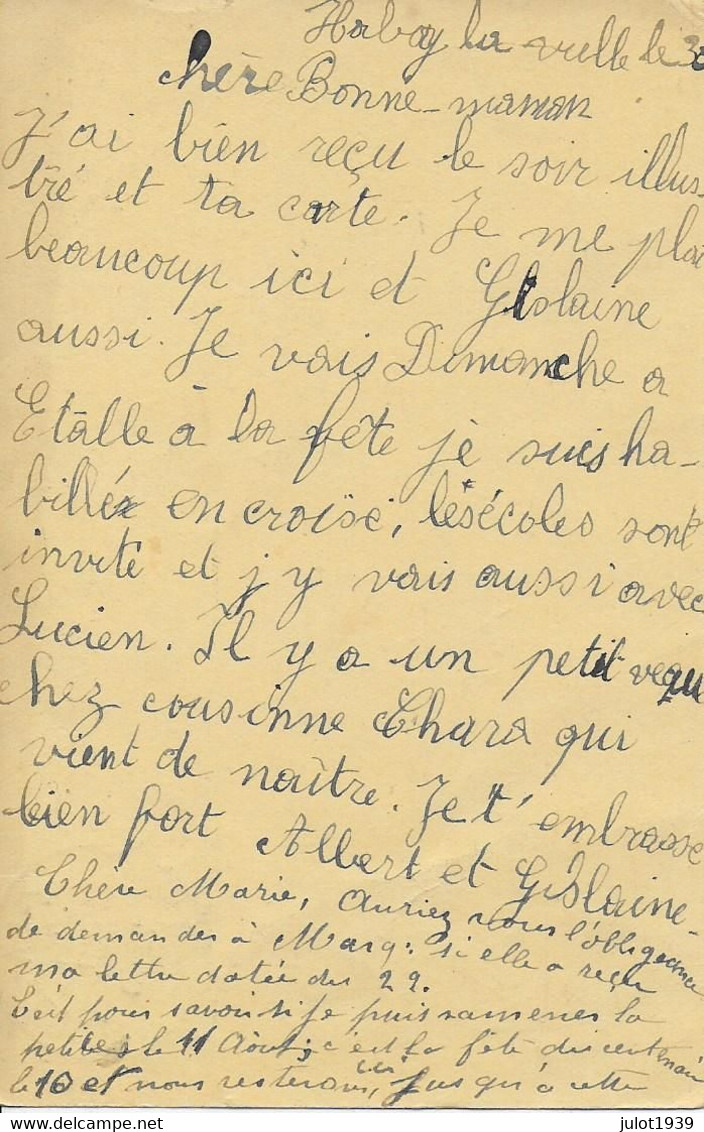 Habay la vielle le 30
chère Bonne-maman
J'ai bien reçu le soir illus-
tré et ta carte. Je me plai
beaucoup ici et Gislaine
aussi. Je vais Dimanche a
Etalle à la fête je suis ha-
billé en croisé, lesécoles sont
invité et j y vais aussi avec
Lucien. Il y a un petit
chez cousinne Chara qui
vient de naître. Je t'embrasse
bien fort Albert et Gislaine-
Chère Marie, Auriez vous l'obligeance
de demander à Marg: si elle a reçu
ma lettre datée du 29.
C'est pour savoir si je puis ramener la
petite le 11 Août; c'est la fête du centenair
le 10 et nous resterons ici jusqu'à cette
julot1939